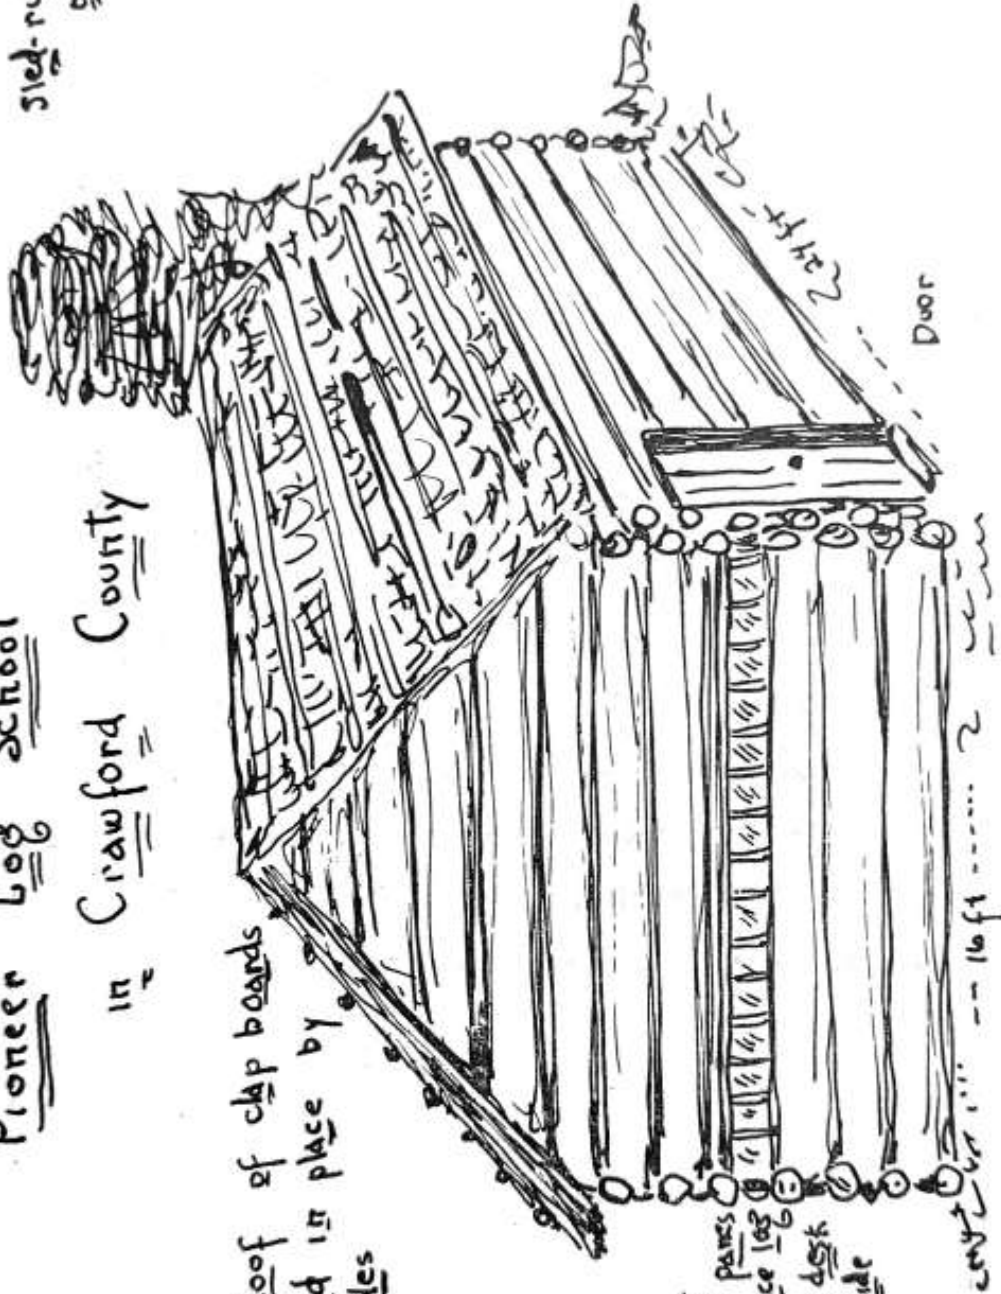 Pioneer Log School
in Crawford County
sled-ru
oof of clap boards
d in place by
les
24 ft
Door
panes
ce log
desk
ide
16 ft